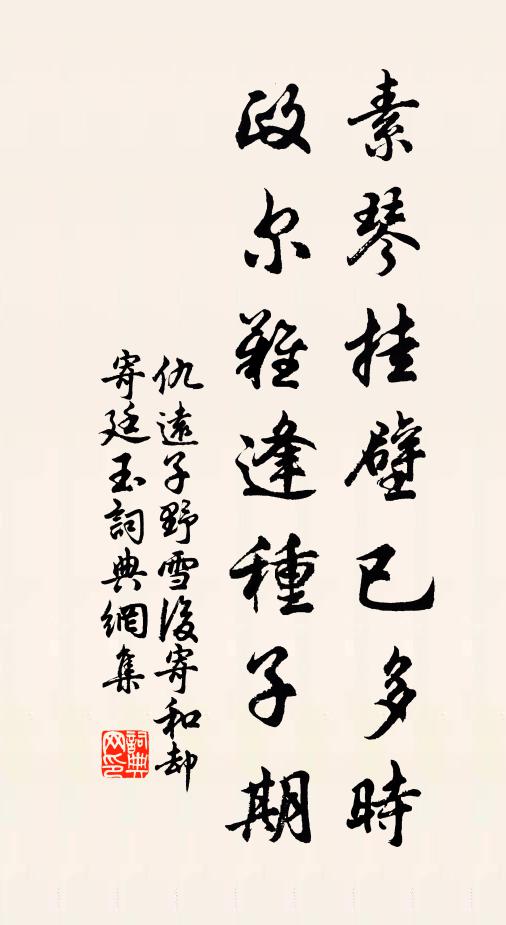 素琴挂壁已多時
政尔難逢種子期
仇遠子野雪後寄和却
寄廷玉詞典網集
詞典網印